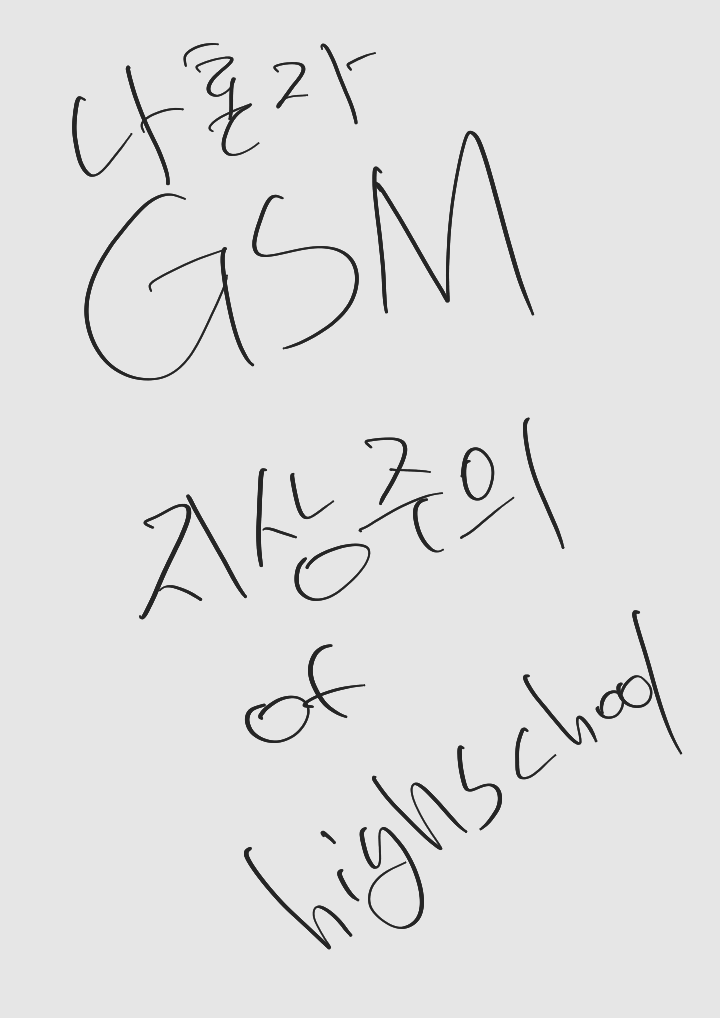 나혼자
GSM
지상주의
of
highschool